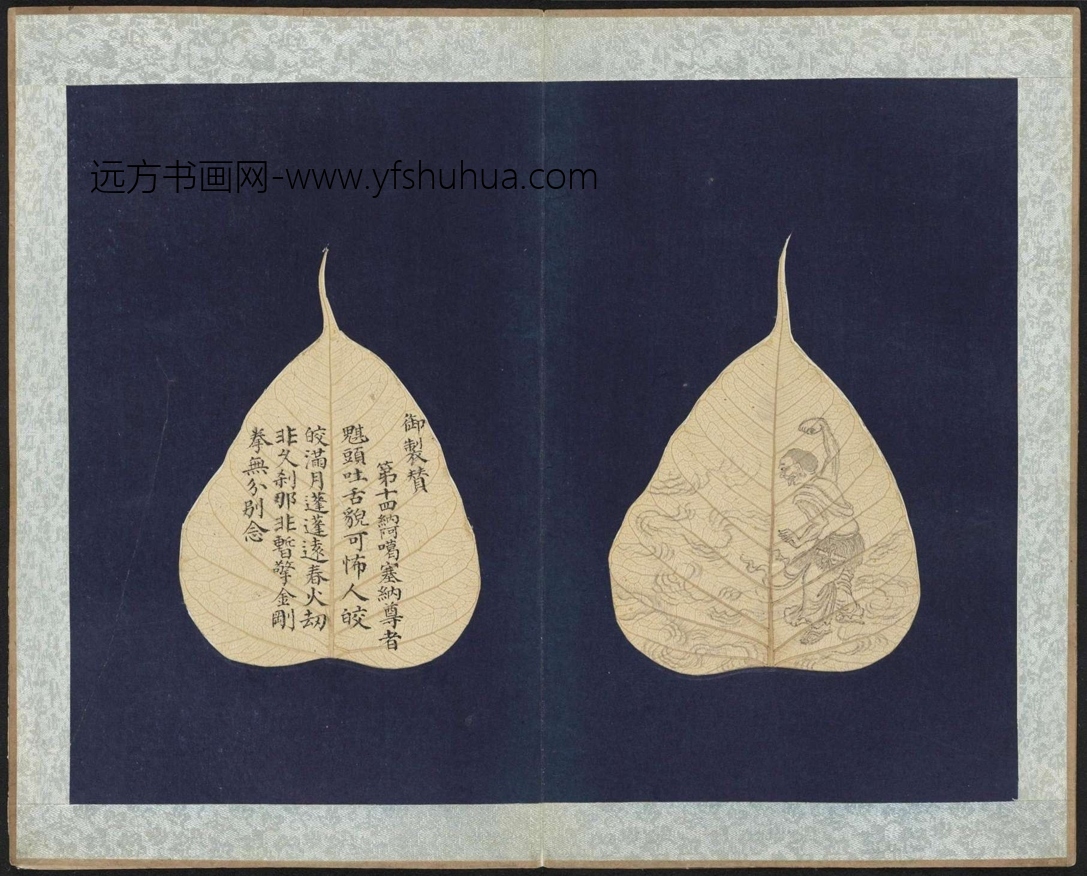 远方书画网-www.yfshuhua.com
御製贊
第十四納阿噶塞納尊者
魌頭吐舌貌可怖人皎
皎滿月蓬蓬遠春火劫
非久刹那非暫擎金剛
拳無分別念